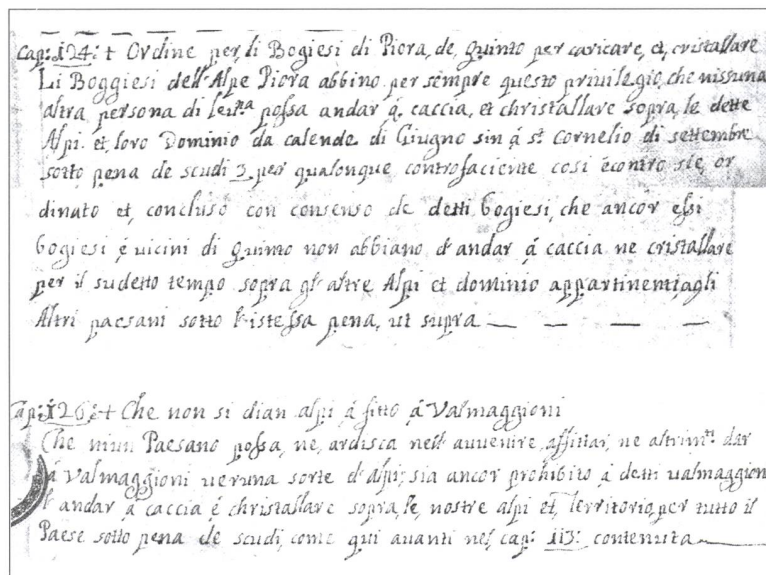 Cap: 124: + Ordine per li Bogiesi di Piora, de Quinto per caricare, et, cristallare
Li Boggiesi dell'Alpe Piora abbino per sempre questo privilegio, che nissuna
altra persona di Lev.na possa andar á caccia, et christallare sopra, le dette
Alpi et, loro Dominio da calende di Giugno sin á st. Cornelio di settembre
sotto pena de scudi 3 per qualonque controfaciente cosi econtro sie, or
dinato et, concluso con consenso de detti bogiesi, che ancor essi
bogiesi é vicini di Quinto non abbiano d'andar á caccia ne cristallare
per il sudetto tempo sopra gl'altre Alpi et dominio appartinenti, agli
Altri paesani sotto l'istessa pena, ut supra — — — —
Cap: 126: + Che non si dian alpi, á fitto, á Valmaggioni
Che niun Paesano possa, ne, ardisca nell'avvenire, affittar, ne altrim.ti dar
á Valmaggioni veruna sorte d'alpi; sia ancor prohibito á detti valmaggioni
l'andar á caccia é christallare sopra, le, nostre alpi et, Territorio, per tutto il
Paese sotto pena de scudi, come qui avanti nel cap: 113: contenuta —